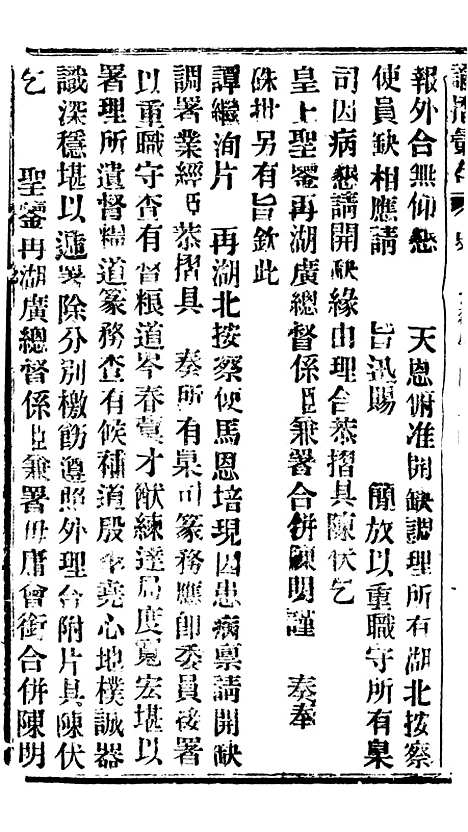 諭摺彙存
報外合無仰懇　天恩俯准開缺調理所有湖北按察
使員缺相應請　旨迅賜　簡放以重職守所有臬
司因病懇請開缺緣由理合恭摺具陳伏乞
皇上聖鑒再湖廣總督係臣兼署合併陳明謹　奏奉
硃批另有旨欽此
譚繼洵片　再湖北按察使馬恩培現因患病稟請開缺
調署業經臣恭摺具　奏所有臬司篆務應即委員接署
以重職守查有督糧道岑春蓂才猷練達局度寬宏堪以
署理所遺督糧道篆務查有候補道殷李堯心地樸誠器
識深穩堪以遞署除分別檄飭遵照外理合附片具陳伏
乞　聖鑒再湖廣總督係臣兼署毋庸會銜合併陳明